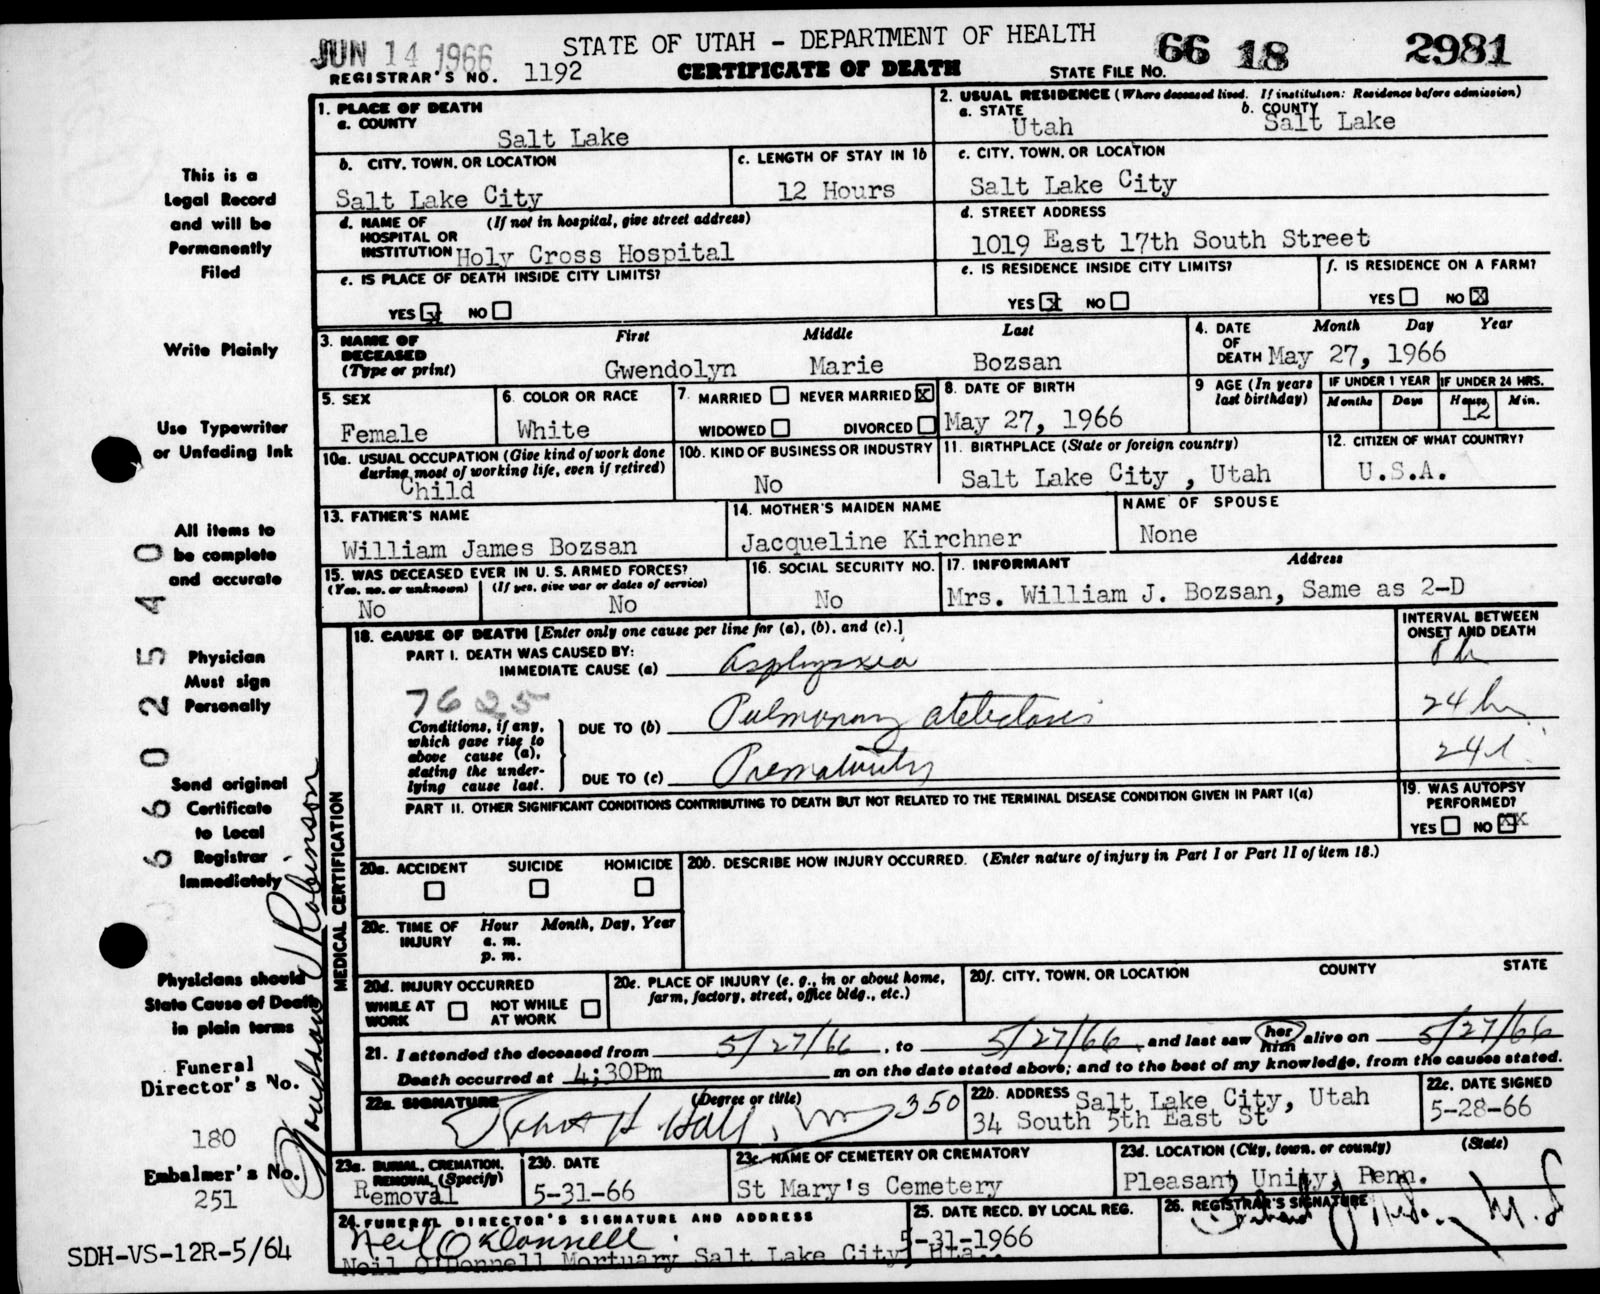 JUN 14 1966
STATE OF UTAH - DEPARTMENT OF HEALTH
66 18 2981
REGISTRAR'S NO. 1192
CERTIFICATE OF DEATH
STATE FILE NO.
This is a
Legal Record
and will be
Permanently
Filed
Write Plainly
Use Typewriter
or Unfading Ink
All items to
be complete
and accurate
Physician
Must sign
Personally
Send original
Certificate
to Local
Registrar
Immediately
Physicians should
State Cause of Death
in plain terms
Funeral
Director's No.
180
Embalmer's No.
251
SDH-VS-12R-5/64
660025540
Robinson
1. PLACE OF DEATH
a. COUNTY
Salt Lake
2. USUAL RESIDENCE (Where deceased lived. If institution: Residence before admission)
a. STATE Utah
b. COUNTY Salt Lake
b. CITY, TOWN, OR LOCATION
Salt Lake City
c. LENGTH OF STAY IN 1b
12 Hours
c. CITY, TOWN, OR LOCATION
Salt Lake City
d. NAME OF HOSPITAL OR INSTITUTION (If not in hospital, give street address)
Holy Cross Hospital
d. STREET ADDRESS
1019 East 17th South Street
e. IS PLACE OF DEATH INSIDE CITY LIMITS?
YES x NO
e. IS RESIDENCE INSIDE CITY LIMITS?
YES x NO
f. IS RESIDENCE ON A FARM?
YES NO x
3. NAME OF DECEASED (Type or print)
First Middle Last
Gwendolyn Marie Bozsan
4. DATE OF DEATH Month Day Year
May 27, 1966
5. SEX
Female
6. COLOR OR RACE
White
7. MARRIED NEVER MARRIED x
WIDOWED DIVORCED
8. DATE OF BIRTH
May 27, 1966
9 AGE (In years last birthday)
IF UNDER 1 YEAR
Months Days
IF UNDER 24 HRS.
Hours Min.
12
10a. USUAL OCCUPATION (Give kind of work done during most of working life, even if retired)
Child
10b. KIND OF BUSINESS OR INDUSTRY
No
11. BIRTHPLACE (State or foreign country)
Salt Lake City , Utah
12. CITIZEN OF WHAT COUNTRY?
U.S.A.
13. FATHER'S NAME
William James Bozsan
14. MOTHER'S MAIDEN NAME
Jacqueline Kirchner
NAME OF SPOUSE
None
15. WAS DECEASED EVER IN U. S. ARMED FORCES?
(Yes, no, or unknown) (If yes, give war or dates of service)
No No
16. SOCIAL SECURITY NO.
No
17. INFORMANT Address
Mrs. William J. Bozsan, Same as 2-D
MEDICAL CERTIFICATION
18. CAUSE OF DEATH [Enter only one cause per line for (a), (b), and (c).]
INTERVAL BETWEEN ONSET AND DEATH
PART I. DEATH WAS CAUSED BY:
IMMEDIATE CAUSE (a) Asphyxia
7625
Conditions, if any, which gave rise to above cause (a), stating the underlying cause last.
DUE TO (b) Pulmonary atelectasis 24 hr
DUE TO (c) Prematurity 24 h
PART II. OTHER SIGNIFICANT CONDITIONS CONTRIBUTING TO DEATH BUT NOT RELATED TO THE TERMINAL DISEASE CONDITION GIVEN IN PART I(a)
19. WAS AUTOPSY PERFORMED?
YES NO xx
20a. ACCIDENT SUICIDE HOMICIDE
20b. DESCRIBE HOW INJURY OCCURRED. (Enter nature of injury in Part I or Part II of item 18.)
20c. TIME OF INJURY Hour Month, Day, Year
a. m.
p. m.
20d. INJURY OCCURRED
WHILE AT WORK NOT WHILE AT WORK
20e. PLACE OF INJURY (e. g., in or about home, farm, factory, street, office bldg., etc.)
20f. CITY, TOWN, OR LOCATION COUNTY STATE
21. I attended the deceased from 5/27/66, to 5/27/66, and last saw her him alive on 5/27/66
Death occurred at 4;30Pm m on the date stated above; and to the best of my knowledge, from the causes stated.
22a. SIGNATURE (Degree or title)
Robert H Hall, M 350
22b. ADDRESS Salt Lake City, Utah
34 South 5th East St
22c. DATE SIGNED
5-28-66
23a. BURIAL, CREMATION, REMOVAL (Specify)
Removal
23b. DATE
5-31-66
23c. NAME OF CEMETERY OR CREMATORY
St Mary's Cemetery
23d. LOCATION (City, town, or county) (State)
Pleasant Unity, Penn.
24. FUNERAL DIRECTOR'S SIGNATURE AND ADDRESS
Neil O'Donnell
Neil O'Donnell Mortuary Salt Lake City, Uta.
25. DATE RECD. BY LOCAL REG.
5-31-1966
26. REGISTRAR'S SIGNATURE